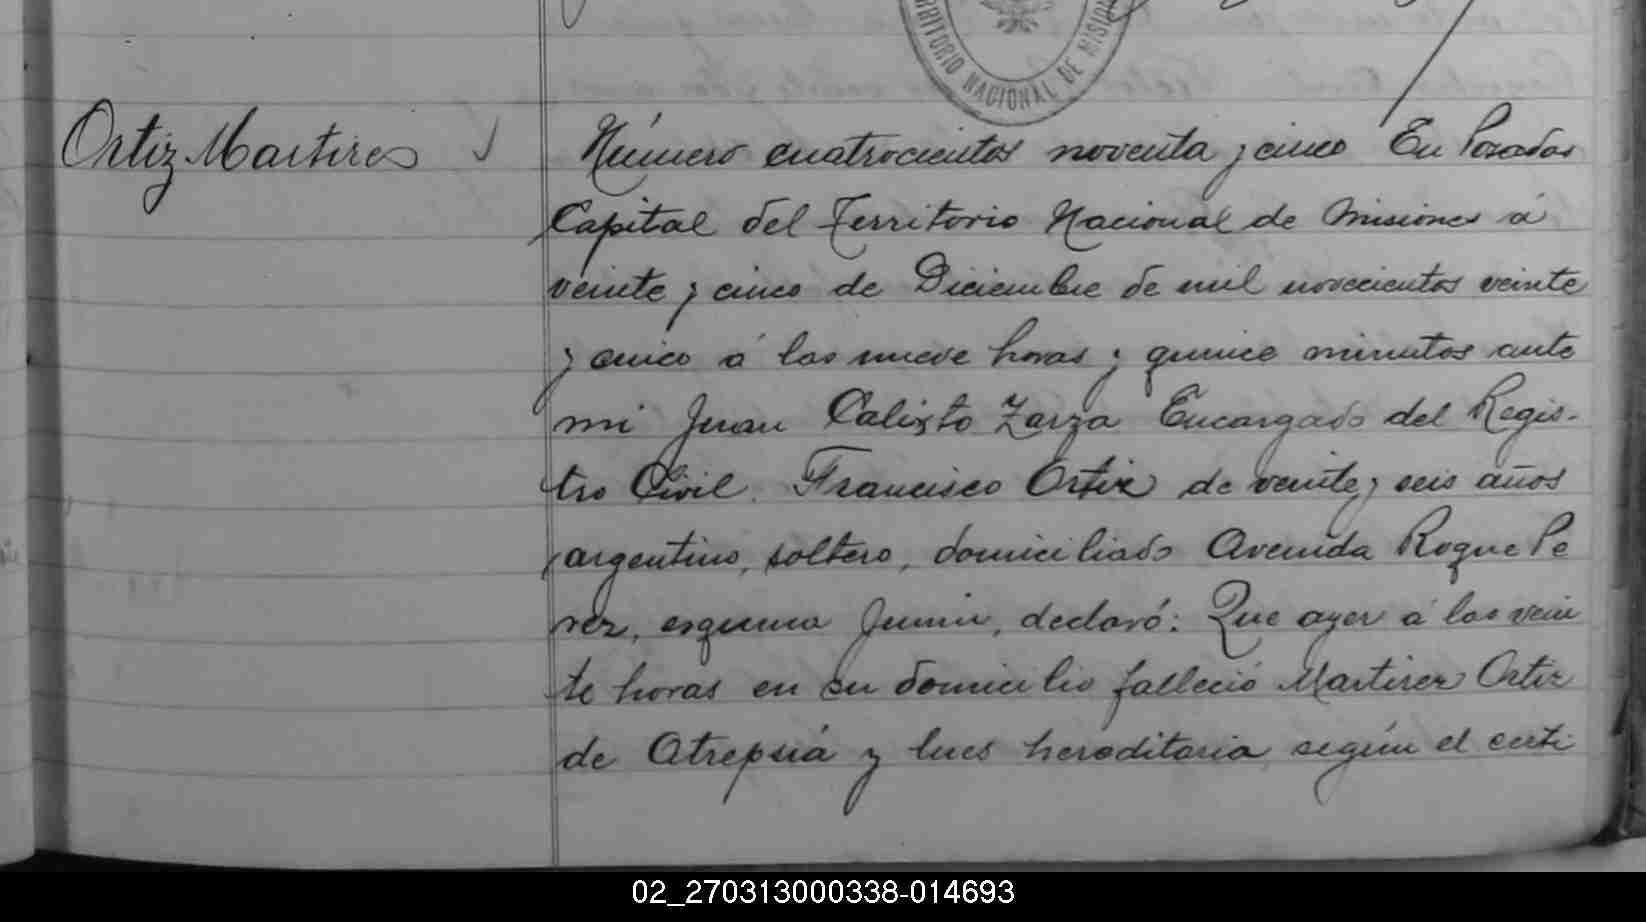 TERRITORIO NACIONAL DE MISIONES
Ortiz Martires
Número cuatrocientos noventa y cinco En Posadas
Capital del Territorio Nacional de Misiones á
veinte y cinco de Diciembre de mil novecientos veinte
y cinco á las nueve horas y quince minutos ante
mi Juan Calixto Zarza Encargado del Regis-
tro Civil. Francisco Ortiz de veinte y seis años
argentino, soltero, domiciliado Avenida Roque Pe
rez, esquina Junin, declaró: Que ayer á las vein
te horas en su domicilio falleció Martires Ortiz
de Atrepsiá y lues hereditaria según el certi
02_270313000338-014693